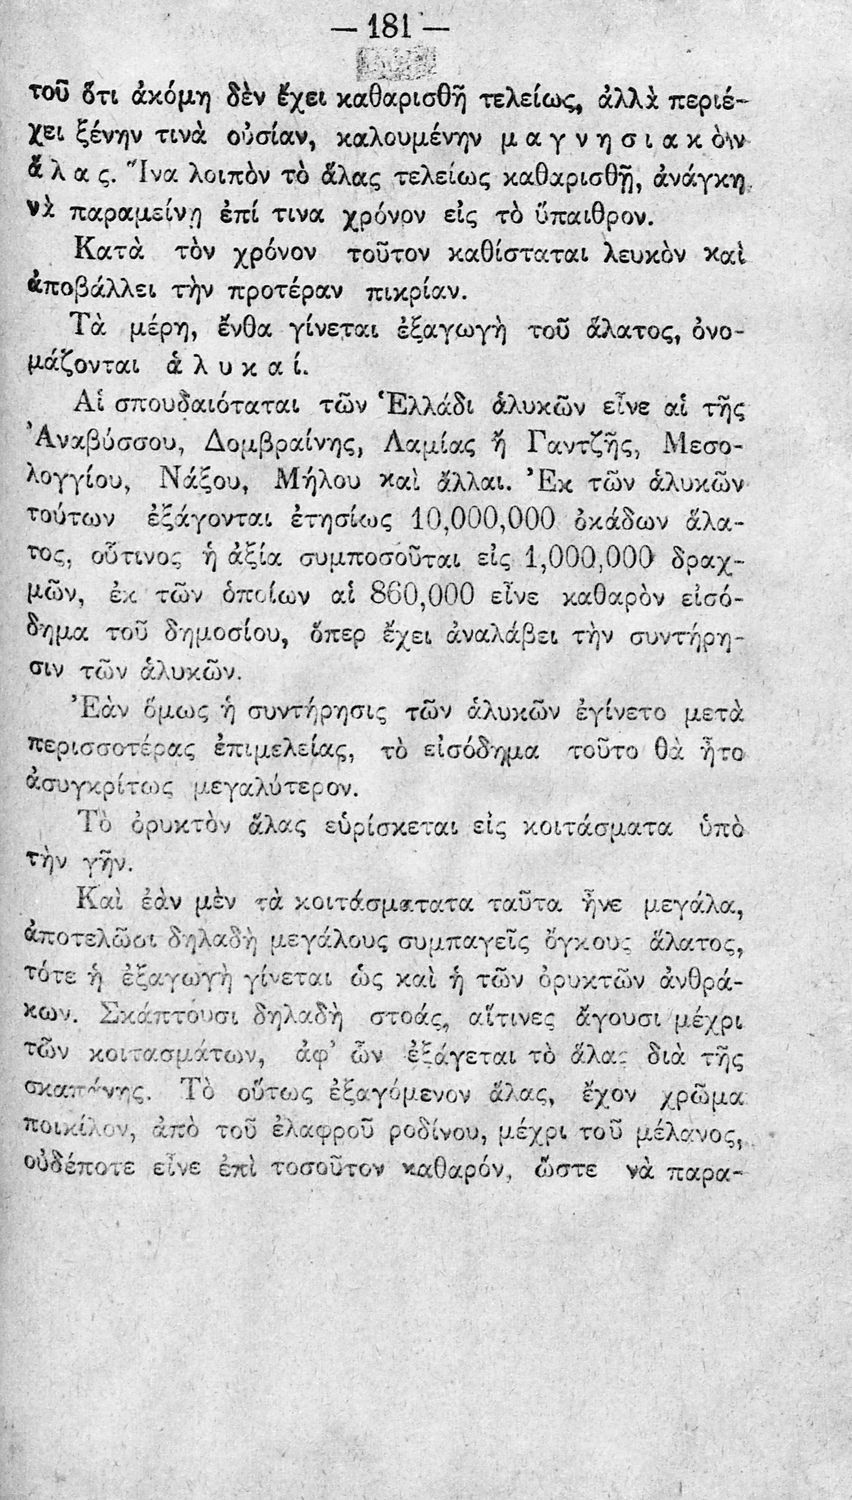 — 181 —
τοῦ ὅτι ἀκόμη δὲν ἔχει καθαρισθῆ τελείως, ἀλλὰ περιέ-
χει ξένην τινὰ οὐσίαν, καλουμένην μ α γ ν η σ ι α κ ὸ ν
ἅ λ α ς. Ἵνα λοιπὸν τὸ ἅλας τελείως καθαρισθῇ, ἀνάγκη
νὰ παραμείνῃ ἐπί τινα χρόνον εἰς τὸ ὕπαιθρον.
Κατὰ τὸν χρόνον τοῦτον καθίσταται λευκὸν καὶ
ἀποβάλλει τὴν προτέραν πικρίαν.
Τὰ μέρη, ἔνθα γίνεται ἐξαγωγὴ τοῦ ἅλατος, ὀνο-
μάζονται ἁ λ υ κ α ί.
Αἱ σπουδαιόταται τῶν Ἑλλάδι ἁλυκῶν εἶνε αἱ τῆς
Ἀναβύσσου, Δομβραίνης, Λαμίας ἢ Γαντζῆς, Μεσο-
λογγίου, Νάξου, Μήλου καὶ ἄλλαι. Ἐκ τῶν ἁλυκῶν
τούτων ἐξάγονται ἐτησίως 10,000,000 ὀκάδων ἅλα-
τος, οὗτινος ἡ ἀξία συμποσοῦται εἰς 1,000,000 δραχ-
μῶν, ἐκ τῶν ὁποίων αἱ 860,000 εἶνε καθαρὸν εἰσό-
δημα τοῦ δημοσίου, ὅπερ ἔχει ἀναλάβει τὴν συντήρη-
σιν τῶν ἁλυκῶν.
Ἐὰν ὅμως ἡ συντήρησις τῶν ἁλυκῶν ἐγίνετο μετὰ
περισσοτέρας ἐπιμελείας, τὸ εἰσόδημα τοῦτο θὰ ἦτο
ἀσυγκρίτως μεγαλύτερον.
Τὸ ὀρυκτὸν ἅλας εὑρίσκεται εἰς κοιτάσματα ὑπὸ
τὴν γῆν.
Καὶ ἐὰν μὲν τὰ κοιτάσματατα ταῦτα ἦνε μεγάλα,
ἀποτελῶσι δηλαδὴ μεγάλους συμπαγεῖς ὄγκους ἅλατος,
τότε ἡ ἐξαγωγὴ γίνεται ὡς καὶ ἡ τῶν ὀρυκτῶν ἀνθρά-
κων. Σκάπτουσι δηλαδὴ στοάς, αἵτινες ἄγουσι μέχρι
τῶν κοιτασμάτων, ἀφ' ὧν ἐξάγεται τὸ ἅλας διὰ τῆς
σκαπάνης. Τὸ οὕτως ἐξαγόμενον ἅλας, ἔχον χρῶμα
ποικίλον, ἀπὸ τοῦ ἐλαφροῦ ροδίνου, μέχρι τοῦ μέλανος,
οὐδέποτε εἶνε ἐπὶ τοσοῦτον καθαρόν, ὥστε νὰ παρα-